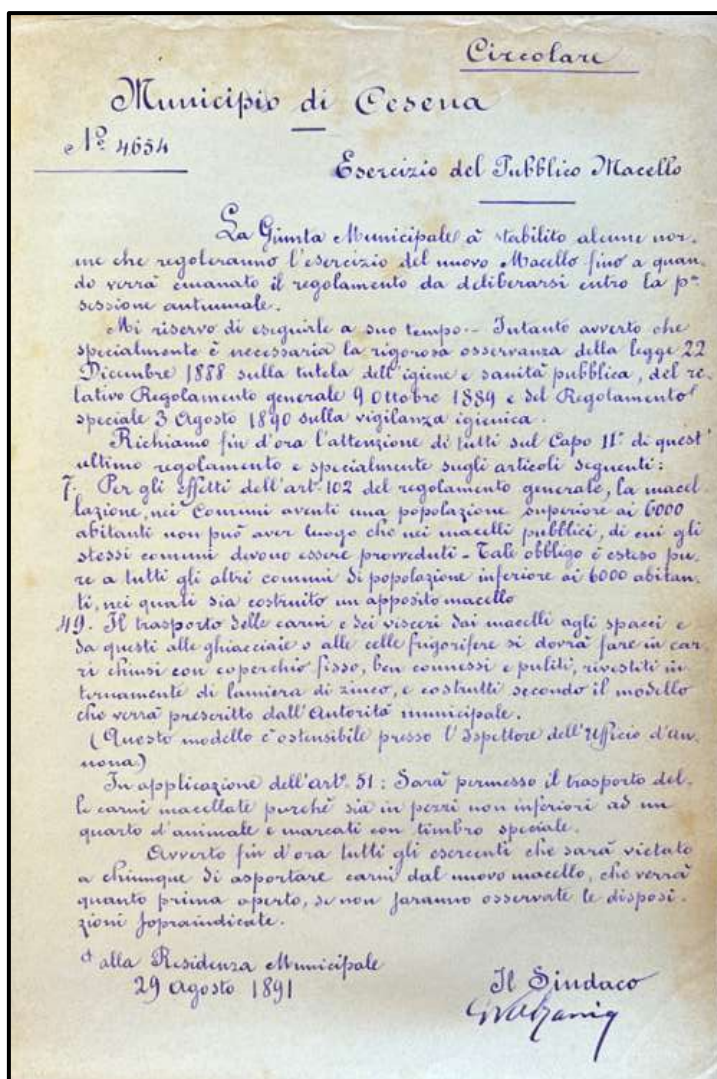 Circolare
Municipio di Cesena
Nº 4654
Esercizio del Pubblico Macello
La Giunta Municipale à stabilito alcune nor-
me che regoleranno l'esercizio del nuovo Macello fino a quan-
do verrà emanato il regolamento da deliberarsi entro la pª
sessione autunnale.
Mi riservo di eseguirle a suo tempo.- Intanto avverto che
specialmente è necessaria la rigorosa osservanza della legge 22
Dicembre 1888 sulla tutela dell'igiene e sanità pubblica, del re-
lativo Regolamento generale 9 Ottobre 1889 e del Regolamento
speciale 3 Agosto 1890 sulla vigilanza igienica.
Richiamo fin d'ora l'attenzione di tutti sul Capo II° di quest'
ultimo regolamento e specialmente sugli articoli seguenti:
7. Per gli effetti dell'art. 102 del regolamento generale, la macel-
lazione, nei Comuni aventi una popolazione superiore ai 6000
abitanti non può aver luogo che nei macelli pubblici, di cui gli
stessi comuni devono essere provveduti - Tale obbligo è esteso pu-
re a tutti gli altri comuni di popolazione inferiore ai 6000 abitan-
ti, nei quali sia costruito un apposito macello
49. Il trasporto delle carni e dei visceri dai macelli agli spacci e
da questi alle ghiacciaie o alle celle frigorifere si dovrà fare in car-
ri chiusi con coperchio fisso, ben connessi e puliti, rivestiti in-
ternamente di lamiera di zinco, e costrutti secondo il modello
che verrà prescritto dall'Autorità municipale.
(Questo modello è ostensibile presso l'Ispettore dell'Ufficio d'An-
nona)
In applicazione dell'artº. 51: Sarà permesso il trasporto del-
le carni macellate purchè sia in pezzi non inferiori ad un
quarto d'animale e marcati con timbro speciale.
Avverto fin d'ora tutti gli esercenti che sarà vietato
a chiunque di asportare carni dal nuovo macello, che verrà
quanto prima aperto, se non saranno osservate le disposi-
zioni sopraindicate.
alla Residenza Municipale
29 Agosto 1891
Il Sindaco